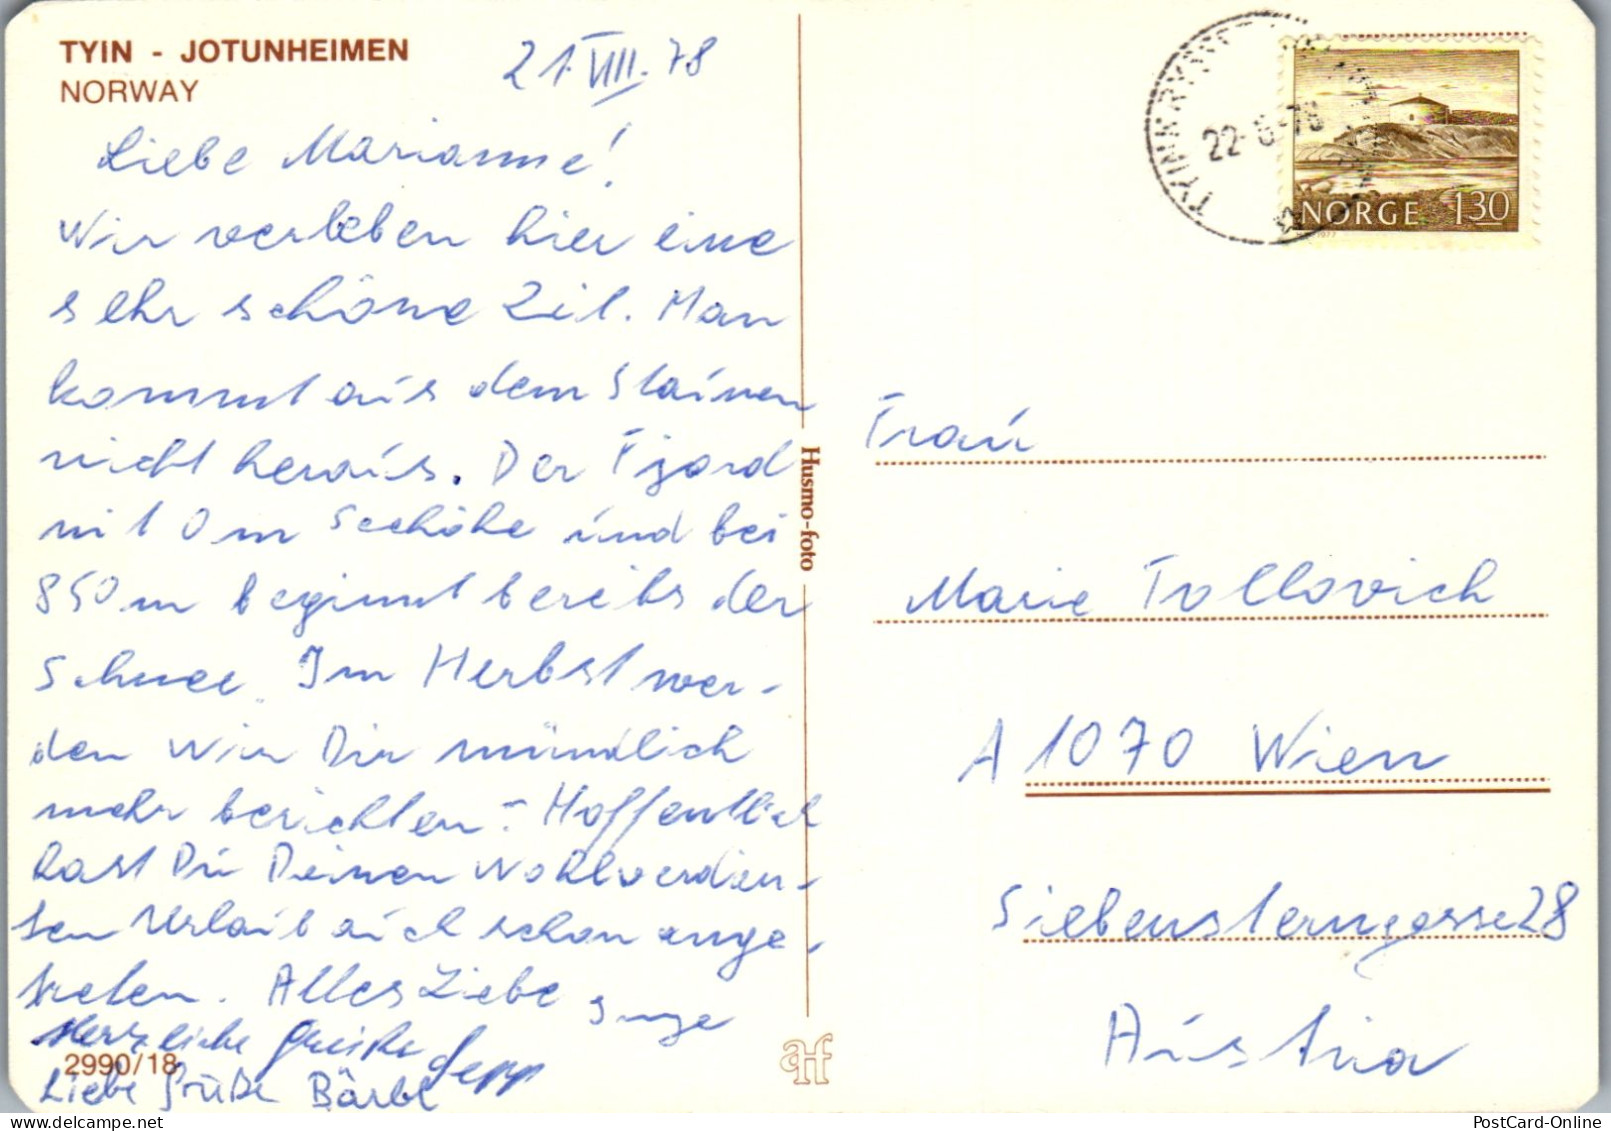 TYIN - JOTUNHEIMEN
NORWAY
21.VIII.78
Liebe Marianne!
Wir verleben hier eine
sehr schöne Zeit. Man
kommt aus dem Staunen
nicht heraus. Der Fjord
mit 0 m Seehöhe und bei
850 m beginnt bereits der
Schnee. Im Herbst wer-
den wir Dir mündlich
mehr berichten - Hoffentlich
hast Du Deinen Wohlverdien-
ten Urlaub auch schon ange-
treten. Alles Liebe Inge
Herzliche Grüße Sepp
2990/18
Liebe Grüße Bärbl
Husmo-foto
22-8-78
NORGE 130
1977
Frau
Marie Tollovich
A 1070 Wien
Siebensterngasse 28
Austria
PostCard-Online